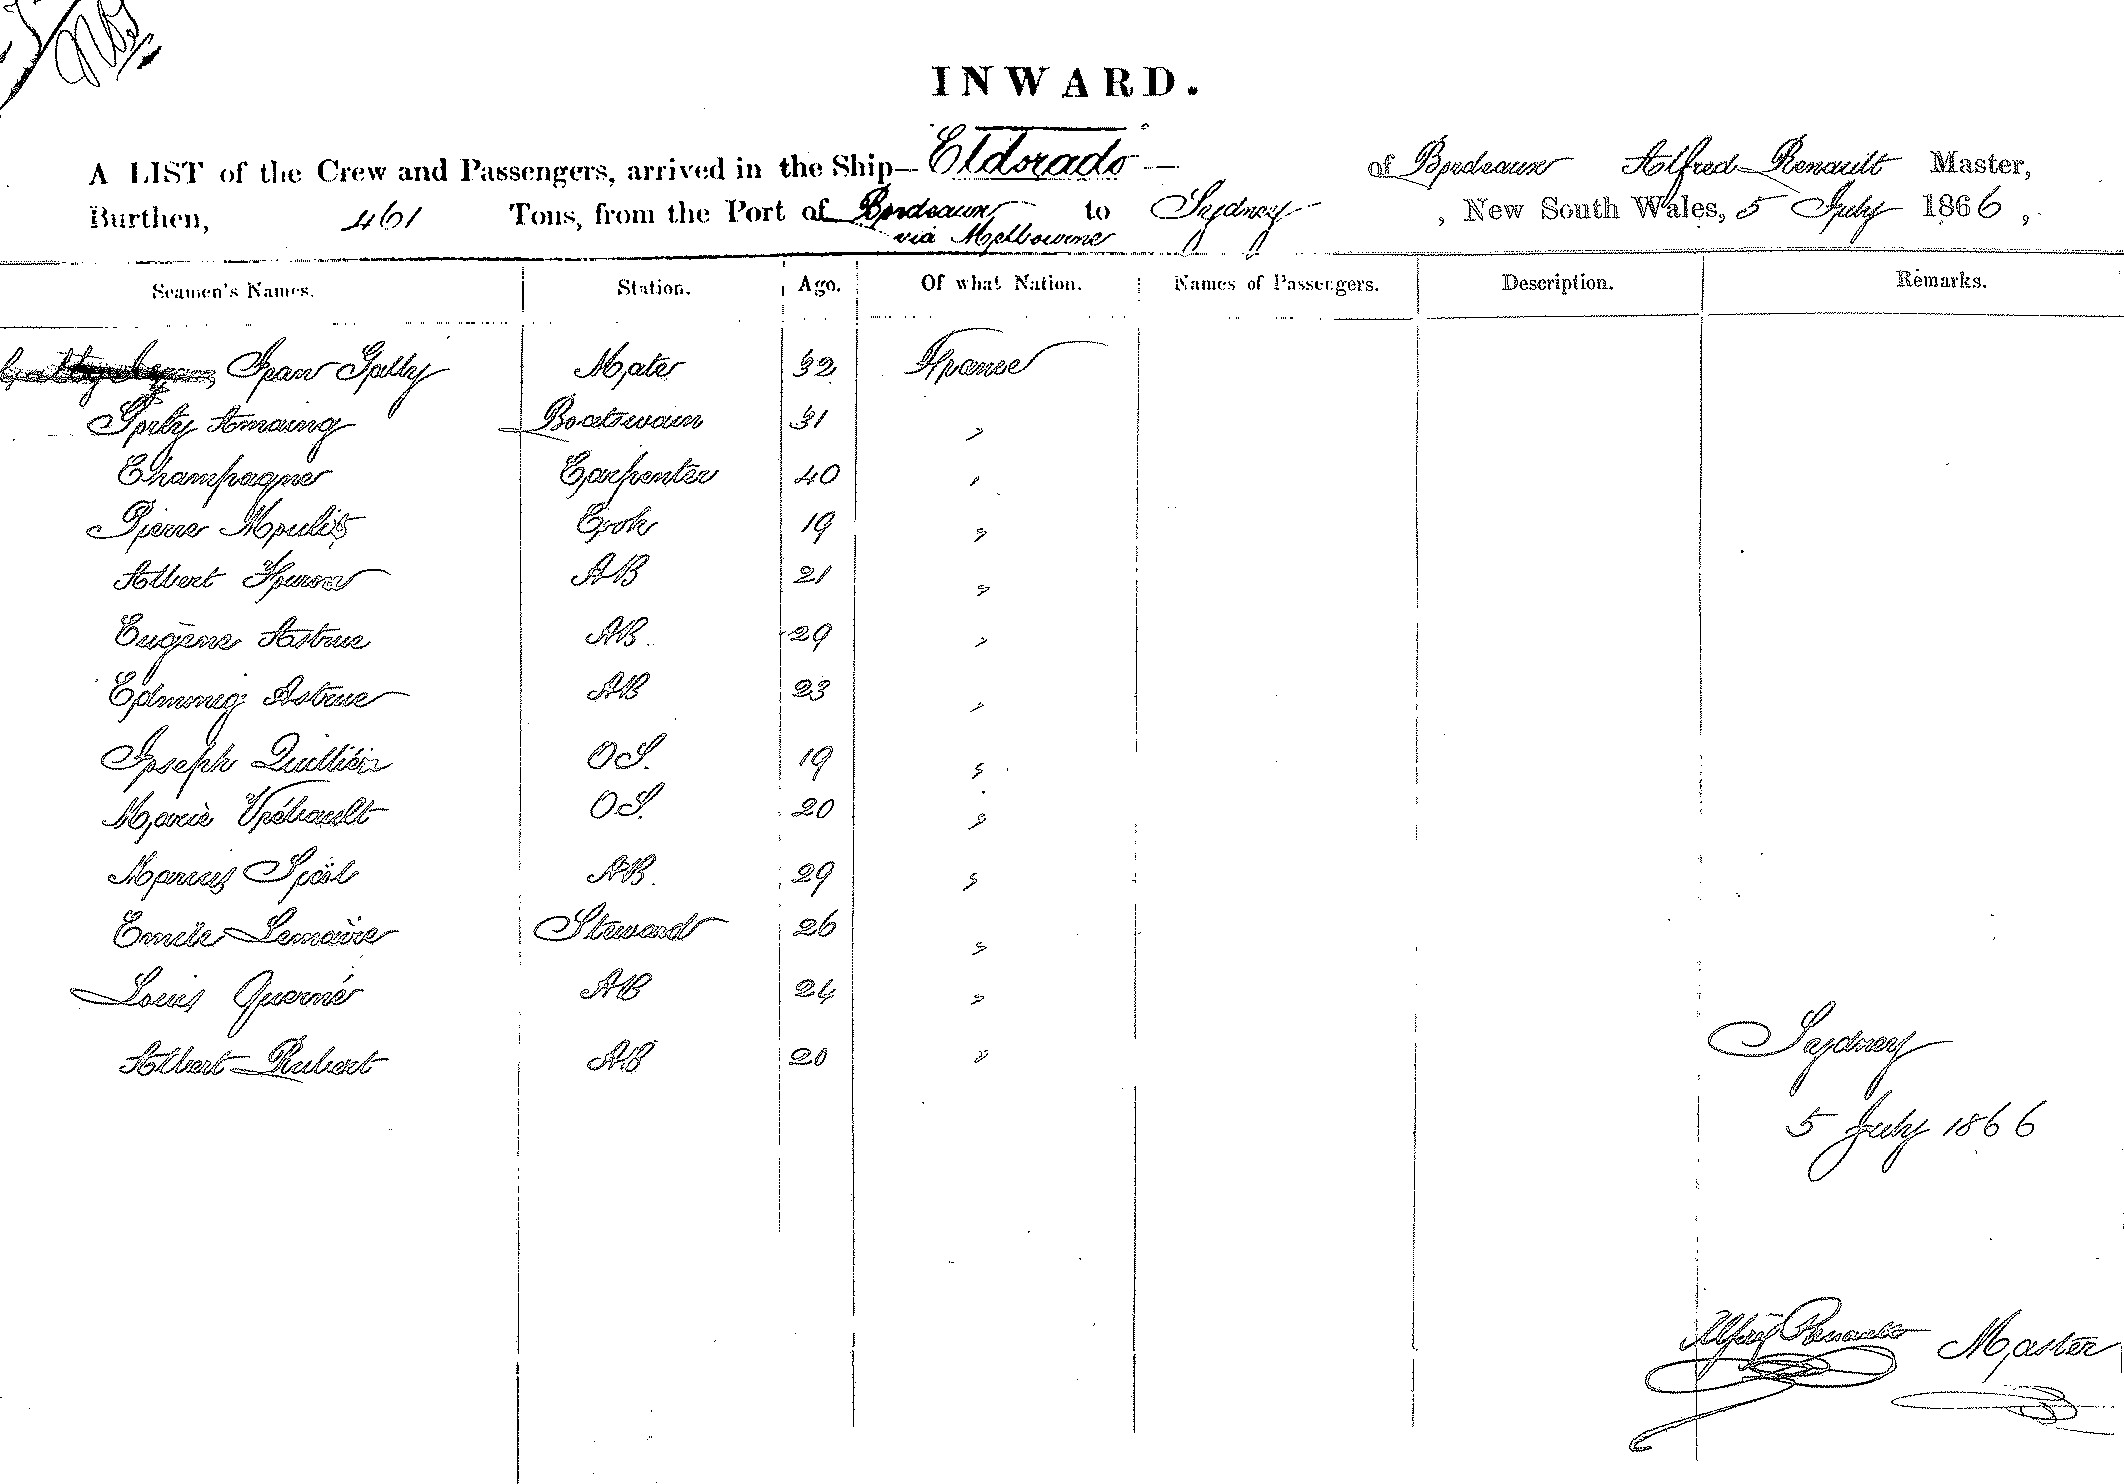 INWARD.
A LIST of the Crew and Passengers, arrived in the Ship— Eldorado — of Bordeaux Alfred Renault Master,
Burthen, 461 Tons, from the Port of Bordeaux to Sydney, New South Wales, 5 July 1866,
via Melbourne
Seamen's Names. Station. Age. Of what Nation. Names of Passengers. Description. Remarks.
Jean Gally Mate 32 France
Boatswain 31 "
Champagne Carpenter 40 "
Pierre Moulis Cook 19 "
Albert AB 21 "
Eugène Astruc AB. 29 "
Astruc AB 23 "
Joseph Quillien OS. 19 "
Marie OS. 20 "
Marius AB. 29 "
Emile Lemaire Steward 26 "
Louis Guerné AB 24 "
Albert Rubert AB 20 "
Sydney
5 July 1866
Alfred Renault Master